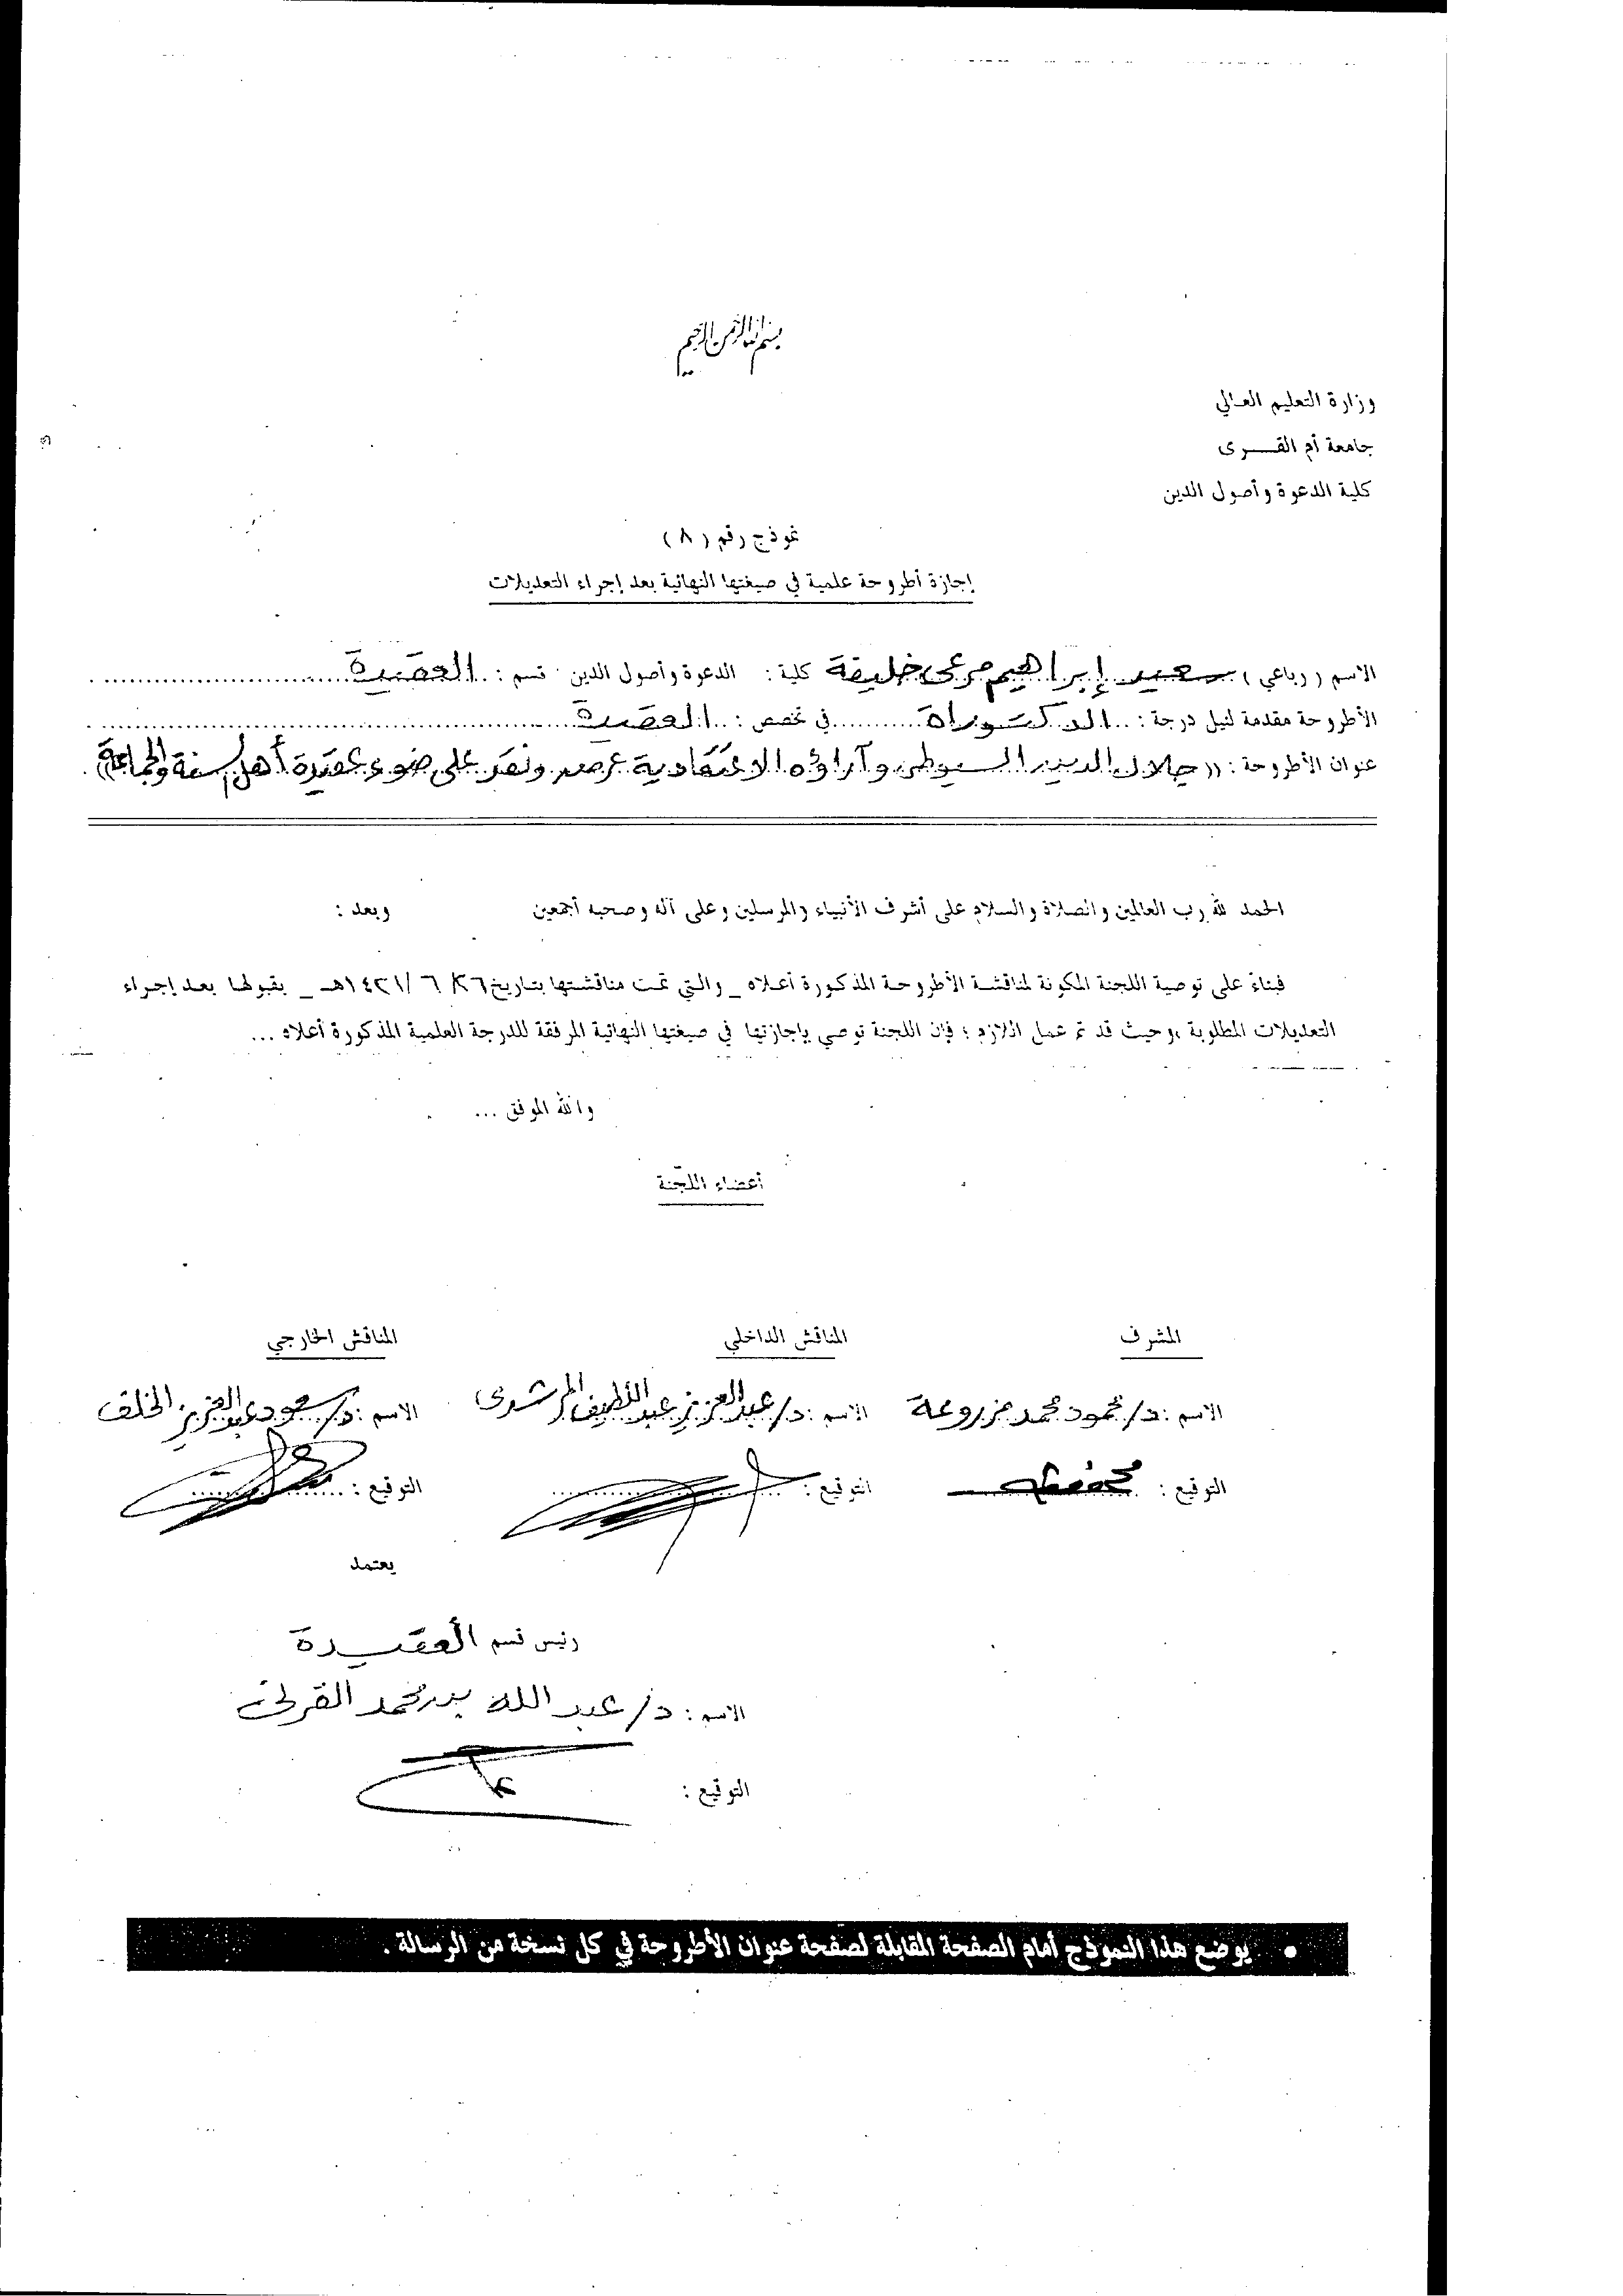 بسم الله الرحمن الرحيم
وزارة التعليم العالي
جامعة أم القــرى
كلية الدعوة وأصول الدين
نموذج رقم ( ٨ )
إجازة أطروحة علمية في صيغتها النهائية بعد إجراء التعديلات
الاسم ( رباعي ) سعيد إبراهيم مرعى خليفة كلية : الدعوة وأصول الدين قسم : العقيدة
الأطروحة مقدمة لنيل درجة : الدكتوراة في تخصص : العقيدة
عنوان الأطروحة : (( جلال الدين السيوطى وآراؤه الاعتقادية عرض ونقد على ضوء عقيدة أهل السنة والجماعة ))
الحمد لله رب العالمين والصلاة والسلام على أشرف الأنبياء والمرسلين وعلى آله وصحبه أجمعين وبعد :
فبناءً على توصية اللجنة المكونة لمناقشة الأطروحة المذكورة أعلاه _ والتي تمت مناقشتها بتاريخ ٢٦/ ٦ /١٤٢١هـ _ بقبولها بعد إجراء
التعديلات المطلوبة ، وحيث قد تم عمل اللازم ؛ فإن اللجنة توصي بإجازتها في صيغتها النهائية المرفقة للدرجة العلمية المذكورة أعلاه ...
والله الموفق ...
أعضاء اللجنة
المشرف المناقش الداخلي المناقش الخارجي
الاسم : د/ محمود محمد مزروعة الاسم : د/ عبد العزيز عبد اللطيف المرشدى الاسم : د/ سعود عبد العزيز الخلف
التوقيع : التوقيع : التوقيع :
يعتمد
رئيس قسم العقيدة
الاسم : د/ عبد الله بن محمد القرني
التوقيع :
• يوضع هذا النموذج أمام الصفحة المقابلة لصفحة عنوان الأطروحة في كل نسخة من الرسالة .